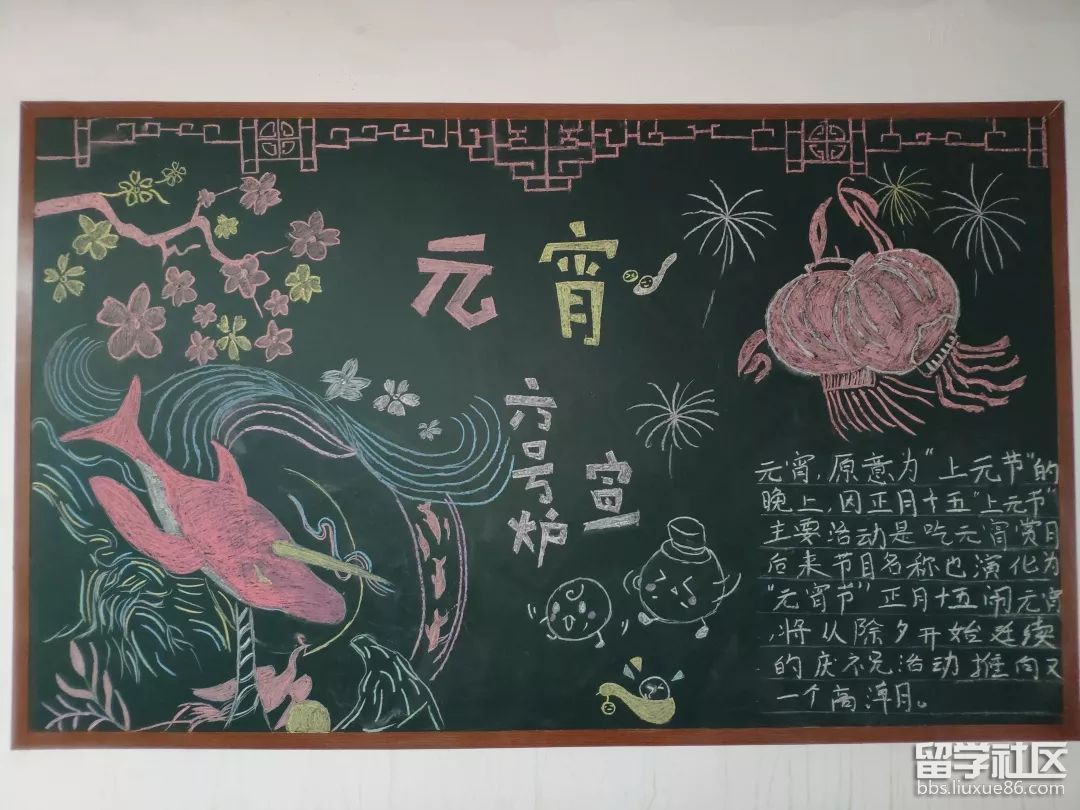 元宵
六号炉
宣
元宵,原意为“上元节”的
晚上,因正月十五“上元节”
主要活动是吃元宵赏月
后来节目名称也演化为
“元宵节”正月十五闹元宵
,将从除夕开始延续
的庆祝活动推向又
一个高潭月。
留学社区
bbs.liuxue86.com